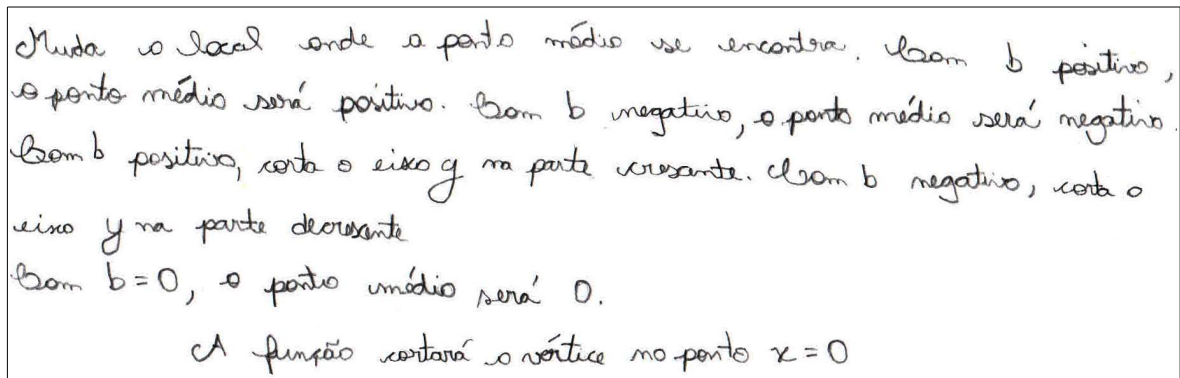 Muda o local onde o ponto médio se encontra. Com b positivo,
o ponto médio será positivo. Com b negativo, o ponto médio será negativo.
Com b positivo, corta o eixo y na parte cresante. Com b negativo, corta o
eixo y na parte decresante
Com b = 0, o ponto médio será 0.
A função cortará o vértice no ponto x = 0